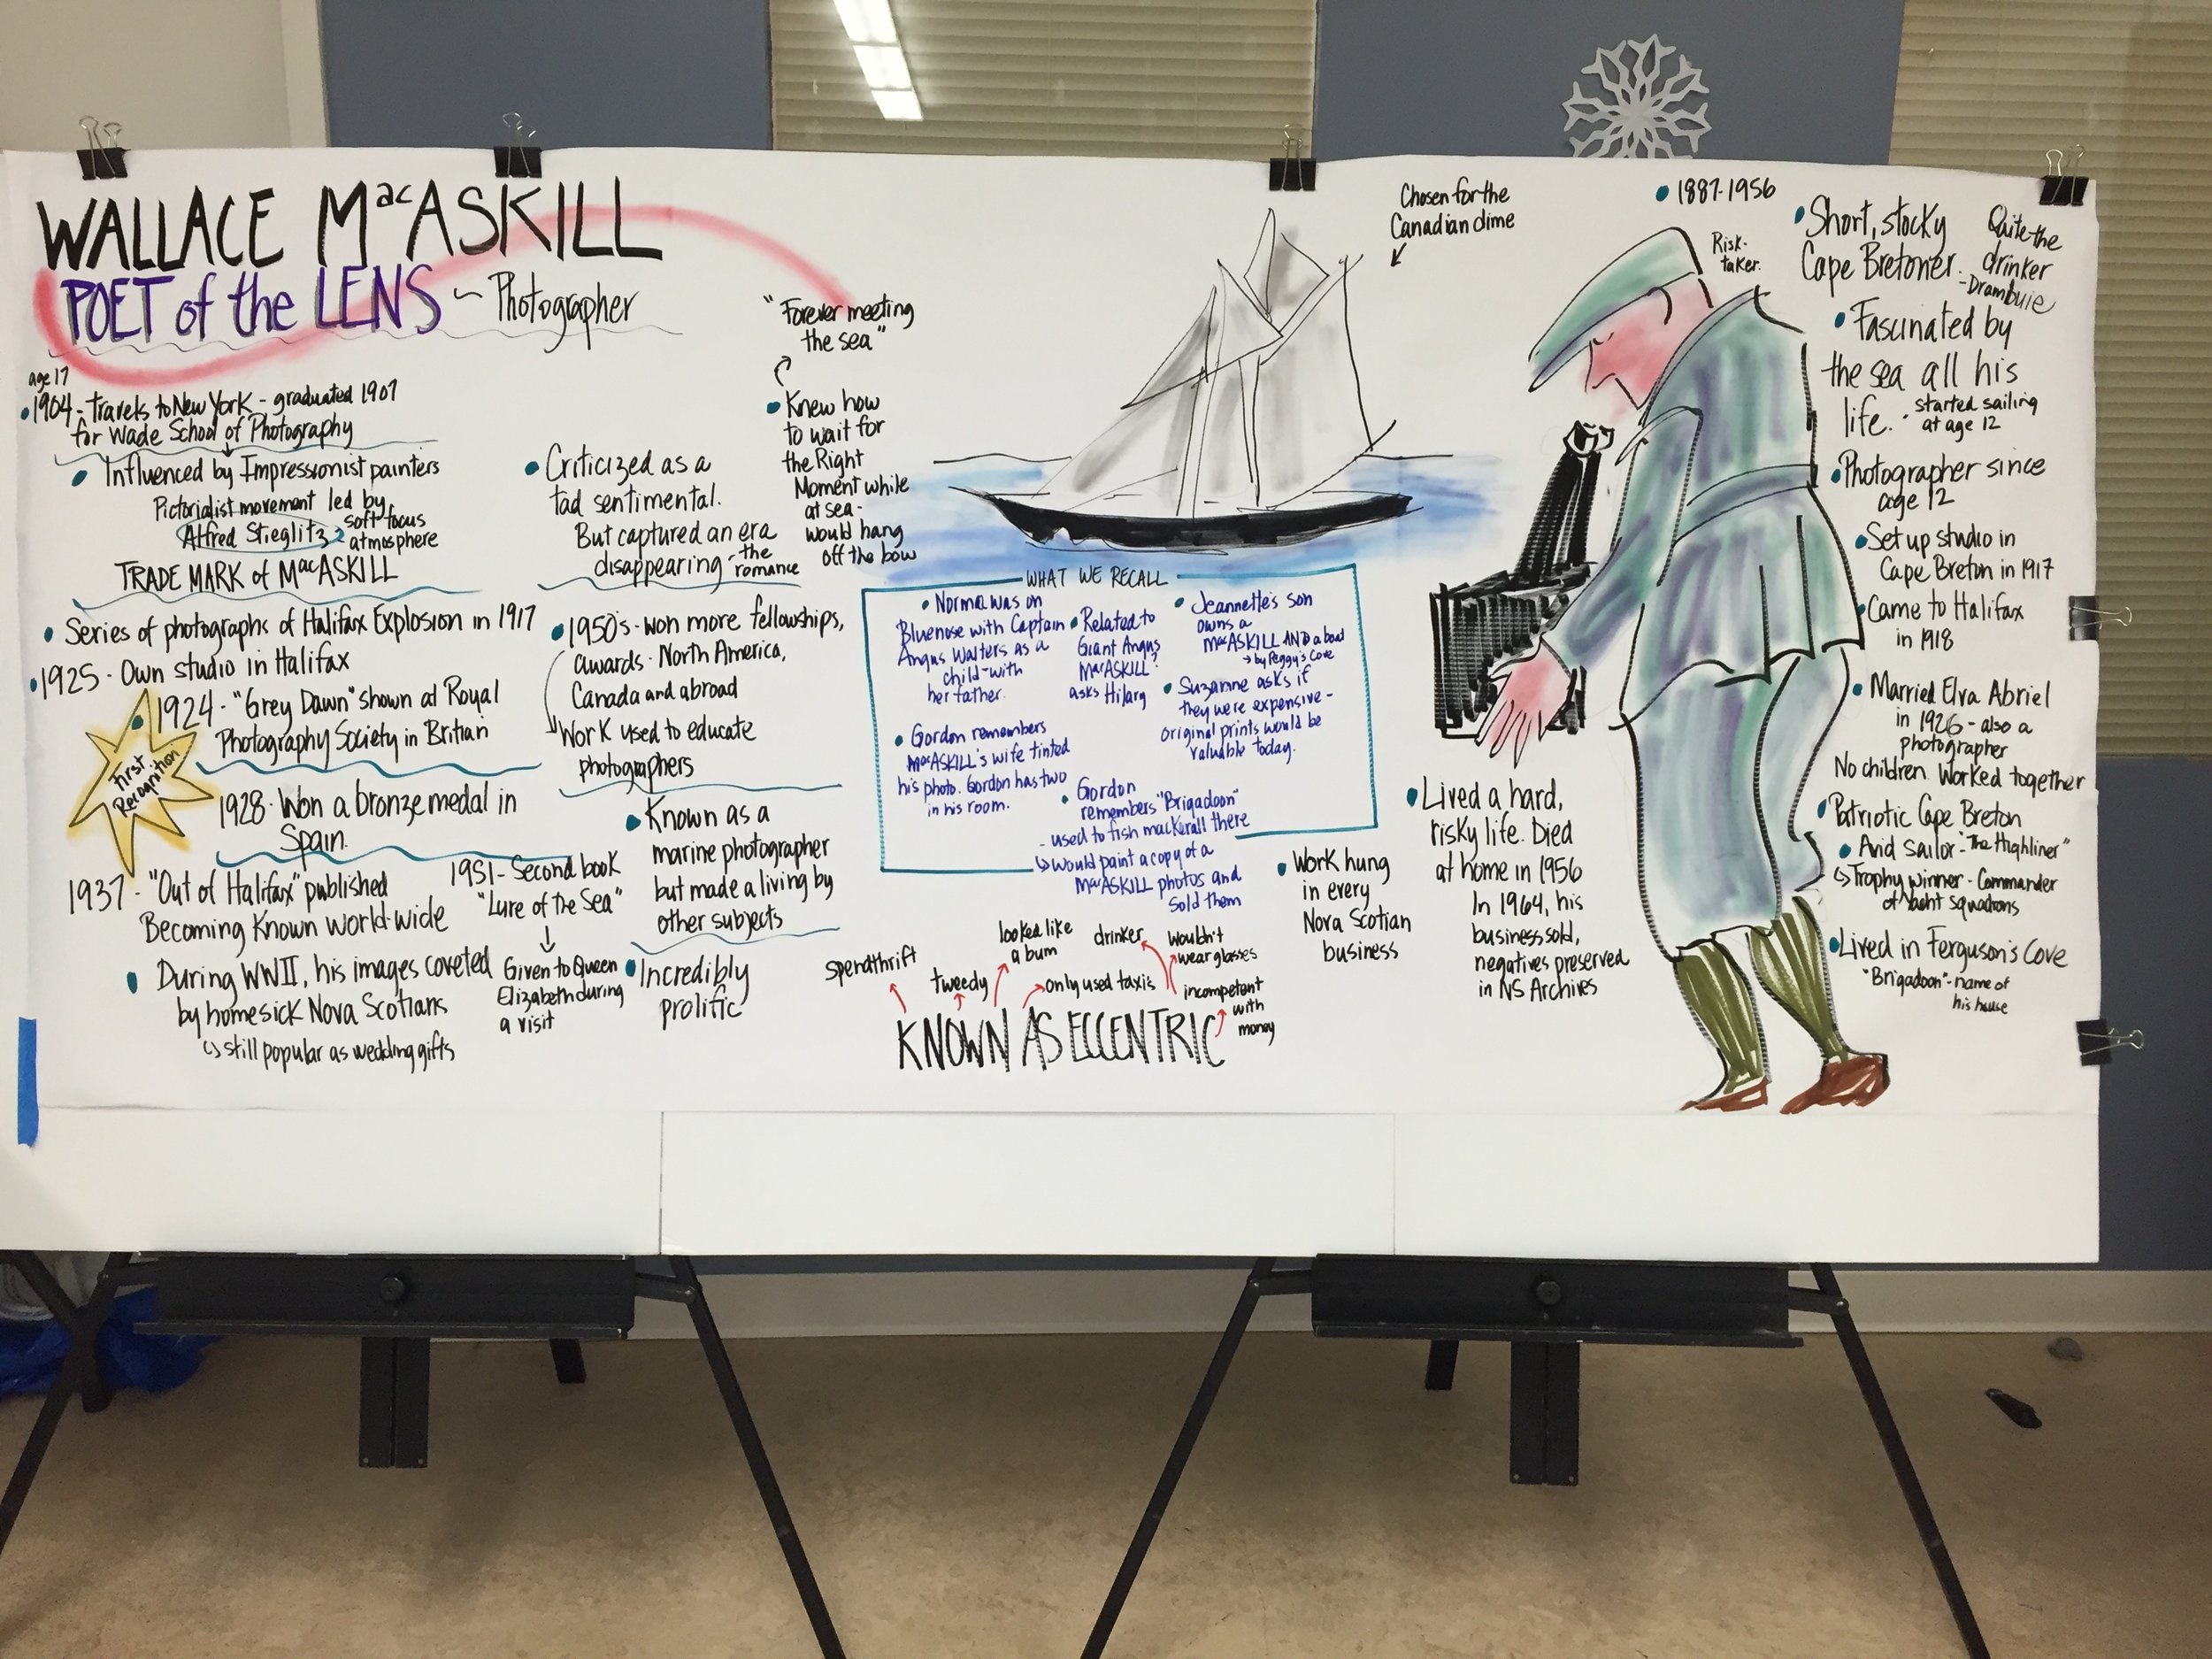 WALLACE MacASKILL
POET of the LENS ~ Photographer
age 17
1904 - Travels to New York - graduated 1907
for Wade School of Photography
Influenced by Impressionist painters
Pictorialist movement led by
Alfred Stieglitz soft focus
atmosphere
TRADE MARK of MacASKILL
Series of photographs of Halifax Explosion in 1917
1925 - Own studio in Halifax
First
Recognition
1924 - "Grey Dawn" shown at Royal
Photography Society in Britian
1928 - Won a bronze medal in
Spain.
1937 - "Out of Halifax" published
Becoming Known world-wide
1951 - Second book
"Lure of the Sea"
Given to Queen
Elizabeth during
a visit
During WWII, his images coveted
by homesick Nova Scotians
still popular as wedding gifts
Criticized as a
tad sentimental.
But captured an era
disappearing - the
romance
1950's - won more fellowships,
awards - North America,
Canada and abroad
Work used to educate
photographers
Known as a
marine photographer
but made a living by
other subjects
Incredibly
prolific
"Forever meeting
the sea"
Knew how
to wait for
the Right
Moment while
at sea -
would hang
off the bow
Chosen for the
Canadian dime
WHAT WE RECALL
Norma was on
Bluenose with Captain
Angus Walters as a
child - with
her father.
Related to
Giant Angus
MacASKILL?
asks Hilary
Jeannette's son
owns a
MacASKILL AND a boat
by Peggy's Cove
Suzanne asks if
they were expensive -
original prints would be
valuable today.
Gordon remembers
MacASKILL's wife tinted
his photo. Gordon has two
in his room.
Gordon
remembers "Brigadoon"
- used to fish mackerall there
would paint a copy of a
MacASKILL photos and
sold them
spendthrift
tweedy
looked like
a bum
only used taxis
drinker
wouldn't
wear glasses
incompetent
with
money
KNOWN AS ECCENTRIC
Work hung
in every
Nova Scotian
business
Lived a hard,
risky life. Died
at home in 1956
In 1964, his
business sold,
negatives preserved
in NS Archives
1887-1956
Risk-
taker
Short, stocky
Cape Bretoner
Quite the
drinker
- Drambuie
Fascinated by
the sea all his
life. - started sailing
at age 12
Photographer since
age 12
Set up studio in
Cape Breton in 1917
Came to Halifax
in 1918
Married Elva Abriel
in 1926 - also a
photographer
No children. Worked together
Patriotic Cape Breton
Avid Sailor - "The Highliner"
Trophy winner - Commander
of Yacht Squadrons
Lived in Ferguson's Cove
"Brigadoon" - name of
his house